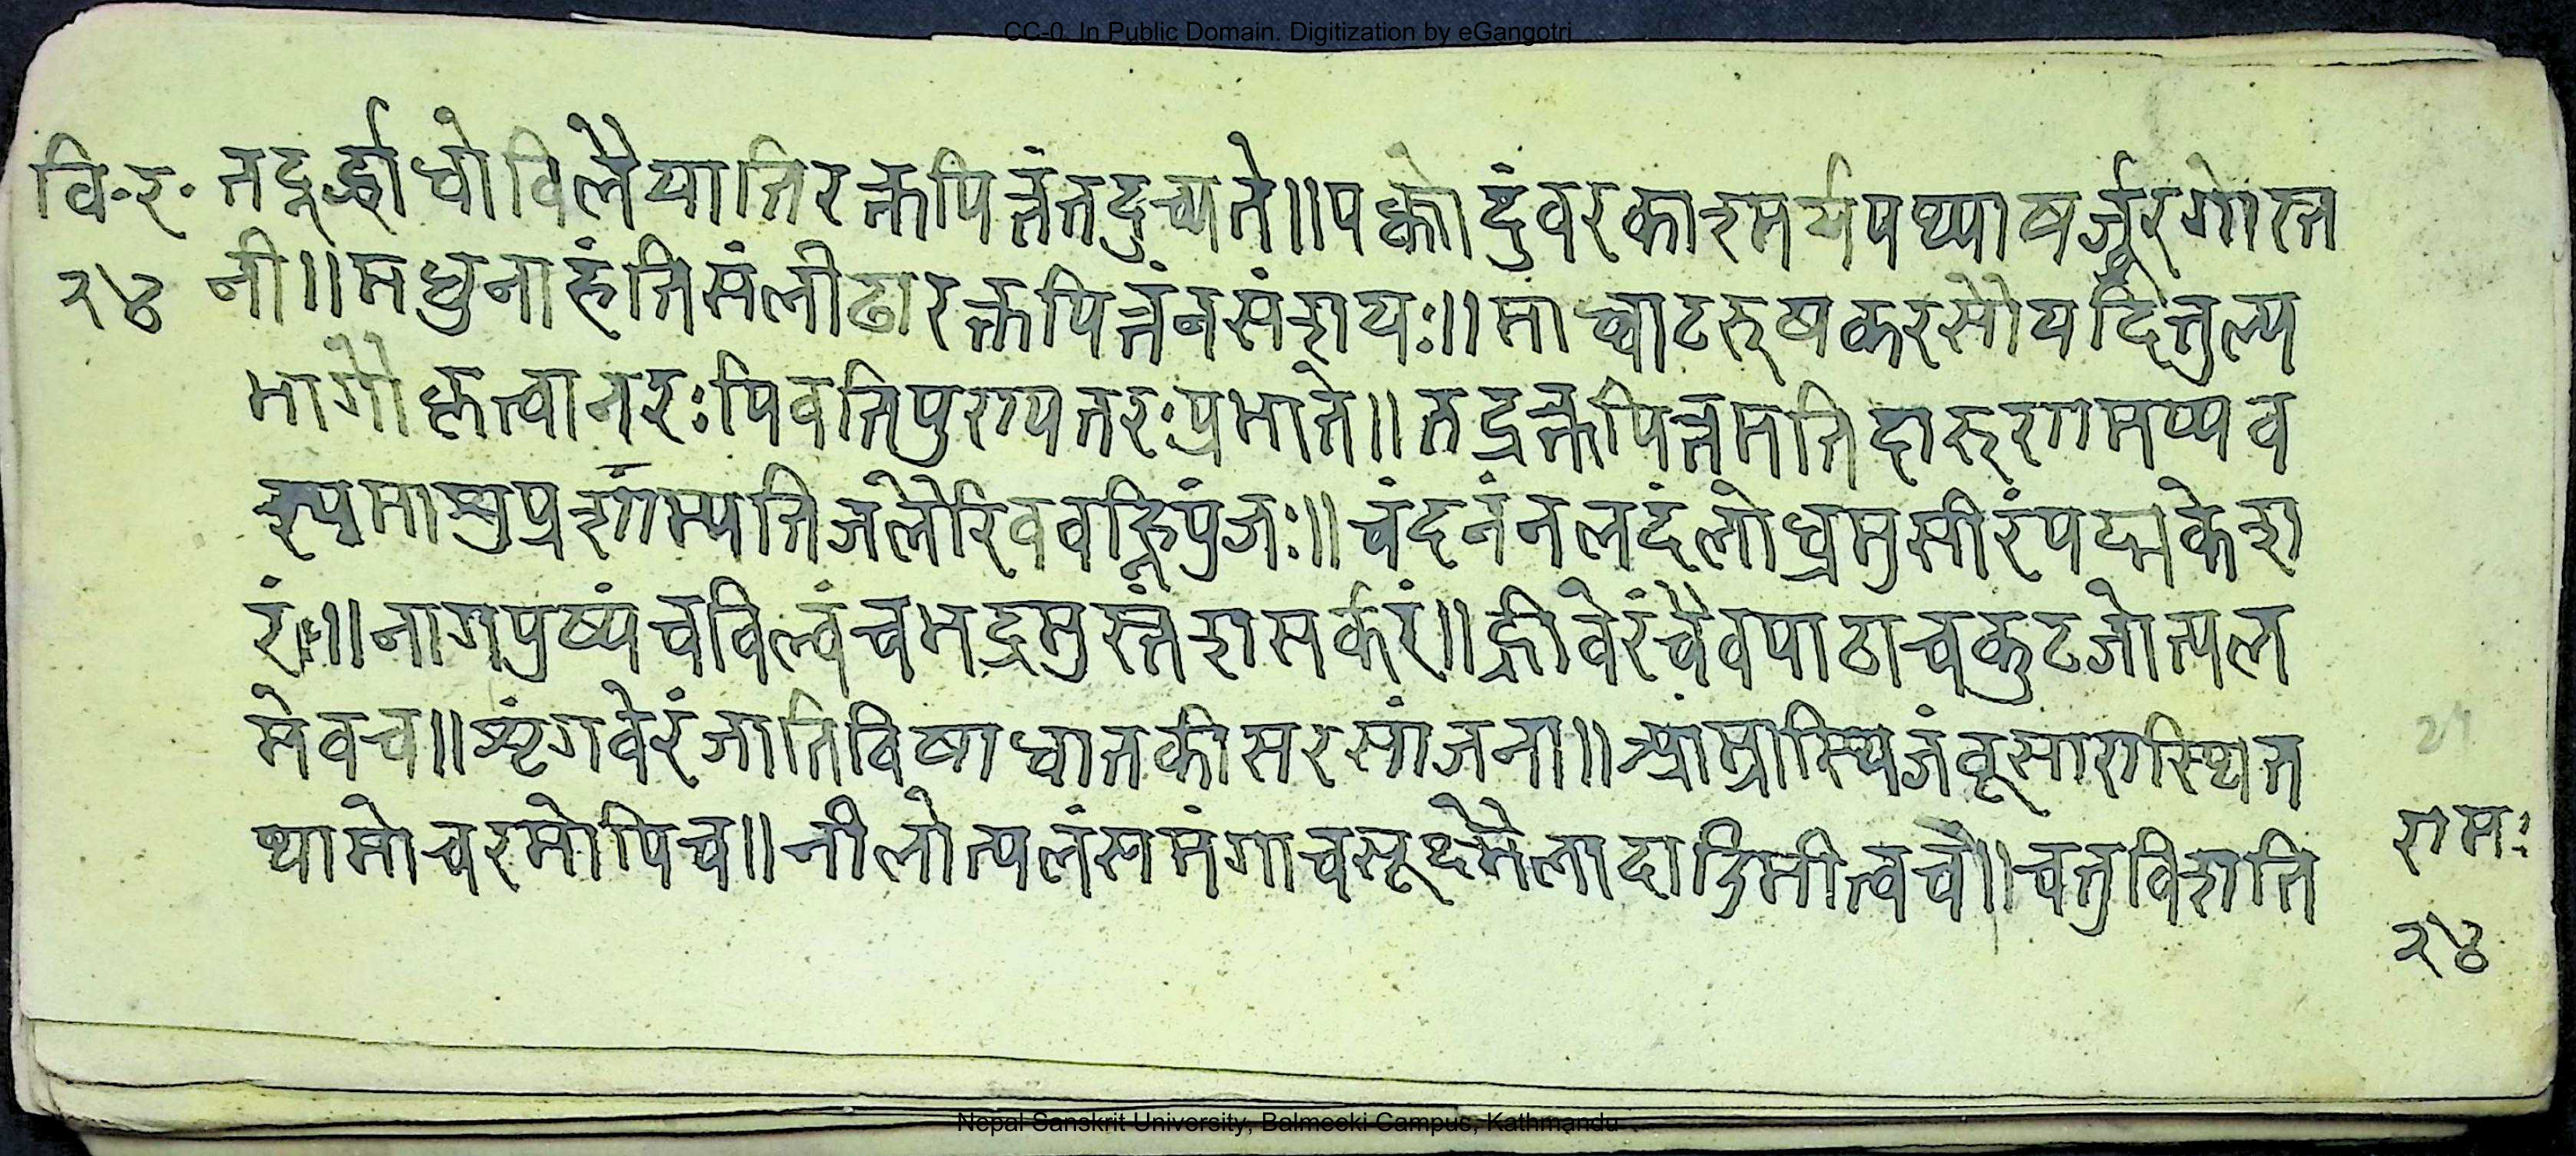 CC-0. In Public Domain. Digitization by eGangotri
वि॰र॰ तदूर्द्धाधोविलैयातिरक्तपित्तंतदुच्यते॥पक्वोदुंवरकाश्मर्यपथ्याषर्जूरगोस्त
२४ नी॥मधुनाहंतिसंलीढारक्तपित्तंनसंशयः॥माध्वाटरुषकरसोयदितुल्य
भागौकृत्वानरःपिवतिपुण्यतरःप्रभाते॥तद्रक्तपित्तमतिदारुणमप्यव
स्यमाशुप्रशाम्यतिजलैरिववह्निपुंजः॥चंदनंनलदंलोध्रमुसीरंपद्मकेश
रं॥नागपुष्पंचविल्वंचभद्रमुस्तंशसर्करं॥ह्रीवेरंचैवपाठाचकुटजोत्पल
मेवच॥शृंगवेरंजातिविषाधातकीसरसांजना॥आम्रास्थिजंवूसारास्थित
थामोचरसोपिच॥नीलोत्पलंसमंगाचसूक्ष्मैलादाडिमीत्वचै॥चतुविंशति
रामः
२४
Nepal Sanskrit University, Balmeeki Campus, Kathmandu